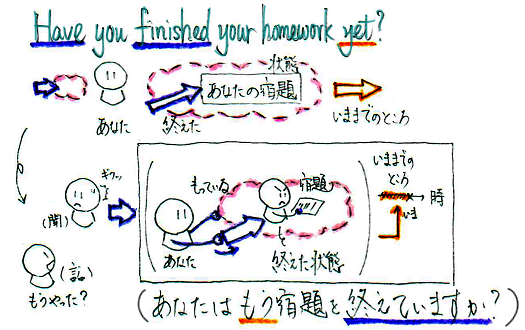 Have you finished your homework yet?
状態
あなたの宿題
あなた
終えた
いままでのところ
ギクッ
(聞)
もっている
宿題
いままでの
ところ
時
いま
あなた
を
終えた状態
(話)
もうやった?
(あなたはもう宿題を終えていますか?)